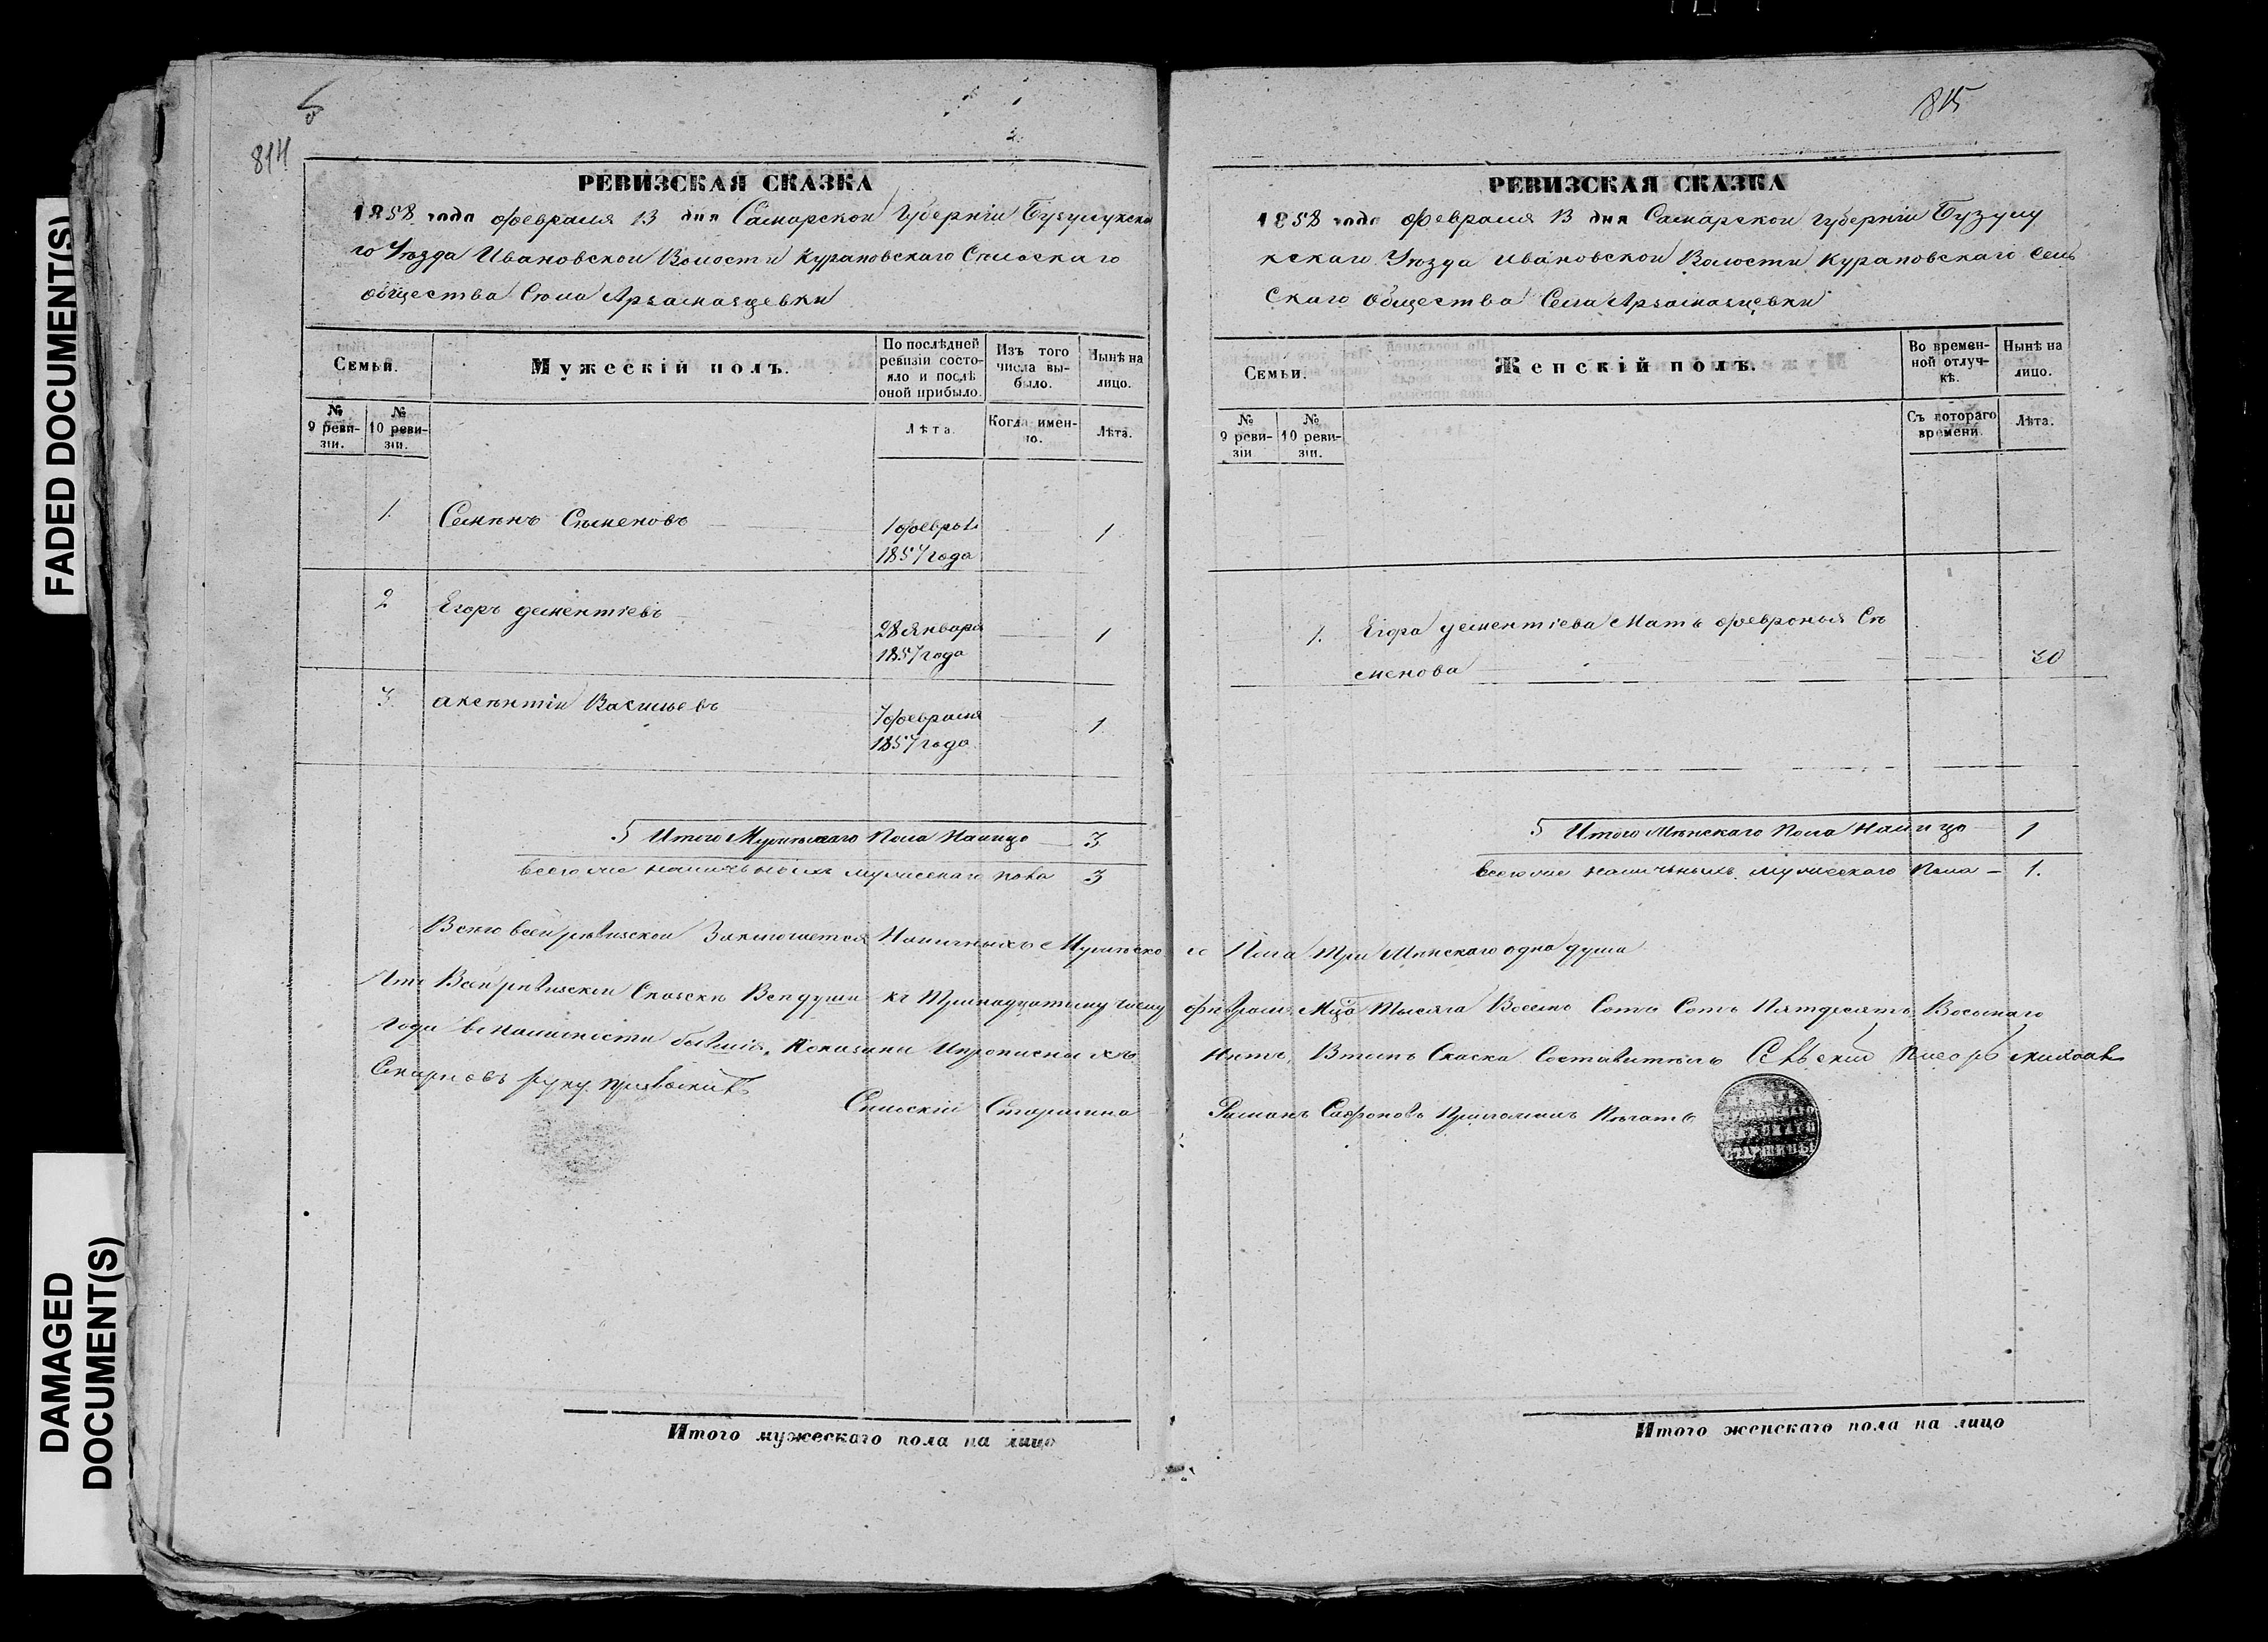 FADED DOCUMENT(S)
DAMAGED
DOCUMENT(S)
814
РЕВИЗСКАЯ СКАЗКА
1858 года февраля 13 дня Самарской Губернiи Бузулукска
го Уезда Ивановской Волости Курановскаго Сельскаго
общества Села Арзамасцевки
Семьи.
Мужескiй полъ.
По послѣдней
ревизiи состо-
яло и послѣ
оной прибыло.
Изъ того
числа вы-
было.
Нынѣ на
лицо.
№
9 реви-
зiи.
№
10 реви-
зiи.
Лѣта.
Когда имен-
но.
Лѣта.
1. Семенъ Семеновъ 1 феврал 1
1857 года
2 Егоръ дементiевъ 28 Января 1
1857 года
3. аксентiй Васильевъ 7 февраля 1
1857 года
Итого Мужескаго Пола Налицо 3
всего же наличныхъ мужескаго пола 3
Итого мужескаго пола на лицо
815
РЕВИЗСКАЯ СКАЗКА
1858 года февраля 13 дня Самарской губернiи Бузулу
кскаго Уезда ивановской Волости Курановскаго Сель
Скаго общества Села Арзамасцевки
Семьи.
Женскiй полъ.
Во времен-
ной отлуч-
кѣ.
Нынѣ на
лицо.
№
9 реви-
зiи
№
10 реви-
зiи.
Съ котораго
времени.
Лѣта.
1. Егора дементiева Мать февронья Се
менова 30
Итого Женскаго Пола Налицо 1
всего же наличныхъ мужескаго Пола 1.
Всего всей ревизской Заключается Наличныхъ Мужеско го Пола три Женскаго одна душа
Что Всей ревизской Сказке Все души къ Тринадцатому числу февраля Мца Тысяча Восемь Сотъ Сотъ Пятдесятъ Восьмаго
года в наличности бывшiя, Показаны Ипрописныхъ Нетъ, Втомъ Сказка Составителъ Сельский писарь
Смарновъ руку приложилъ
Сельскiй Старшина Романъ Сафроновъ Приложилъ Печать
СТАРШИНЫ
Итого женскаго пола на лицо